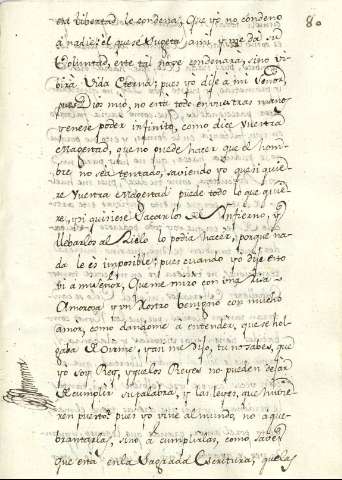 esa libertad le condena, Que yo no condeno
80
a nadie; el que se sugeta a mi, y me da su
Voluntad, este tal no se condenara, sino vi-
bira Vida Eterna; pues yo dije a mi Señor,
pues Dios mio, no esta todo en vuestras mano
tenese poder infinito, como dice vuestra
Magestad, que no puede hacer que el hom-
bre no sea tentado, saviendo yo que si quie-
re Vuestra Magestad puede todo lo que quie-
re, y si quiciese sacarlos del Infierno, y
llebarlos al Sielo lo podia hacer, porque na-
da le es imposible; pues cuando yo dije esto
bi a mi Señor, Que me miro con una Risa
Amorosa y un Rostro benigno con mucho
amor, como dandome a entender, que se hol-
gaba de oirme, y an me dijo, tu no sabes, que
yo soy Rey, y que los Reyes no pueden dejar
de cumplir su palabra, y las leyes, que hubie-
ren puerto? pues yo vine al mundo, no a que-
brantarlas, sino a cumplirlas, como saber
que esta en la Sagrada Escritura, que las